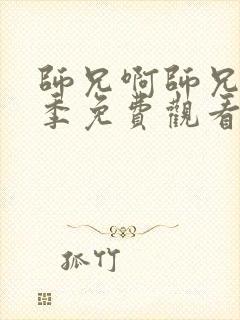 師兄啊師兄
季免費觀看
孤竹